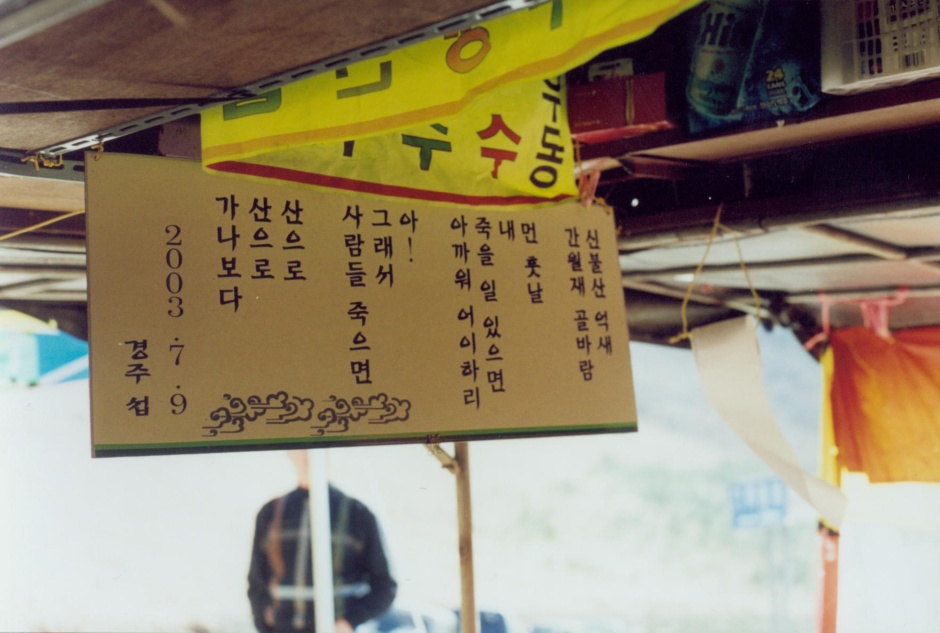 신불산 억새
간월재 골바람
먼 훗날
내
죽을 일 있으면
아까워 어이하리
아!
그래서
사람들 죽으면
산으로
산으로
가나보다
2003.7.9
경주섭
수수
동
Hi
24